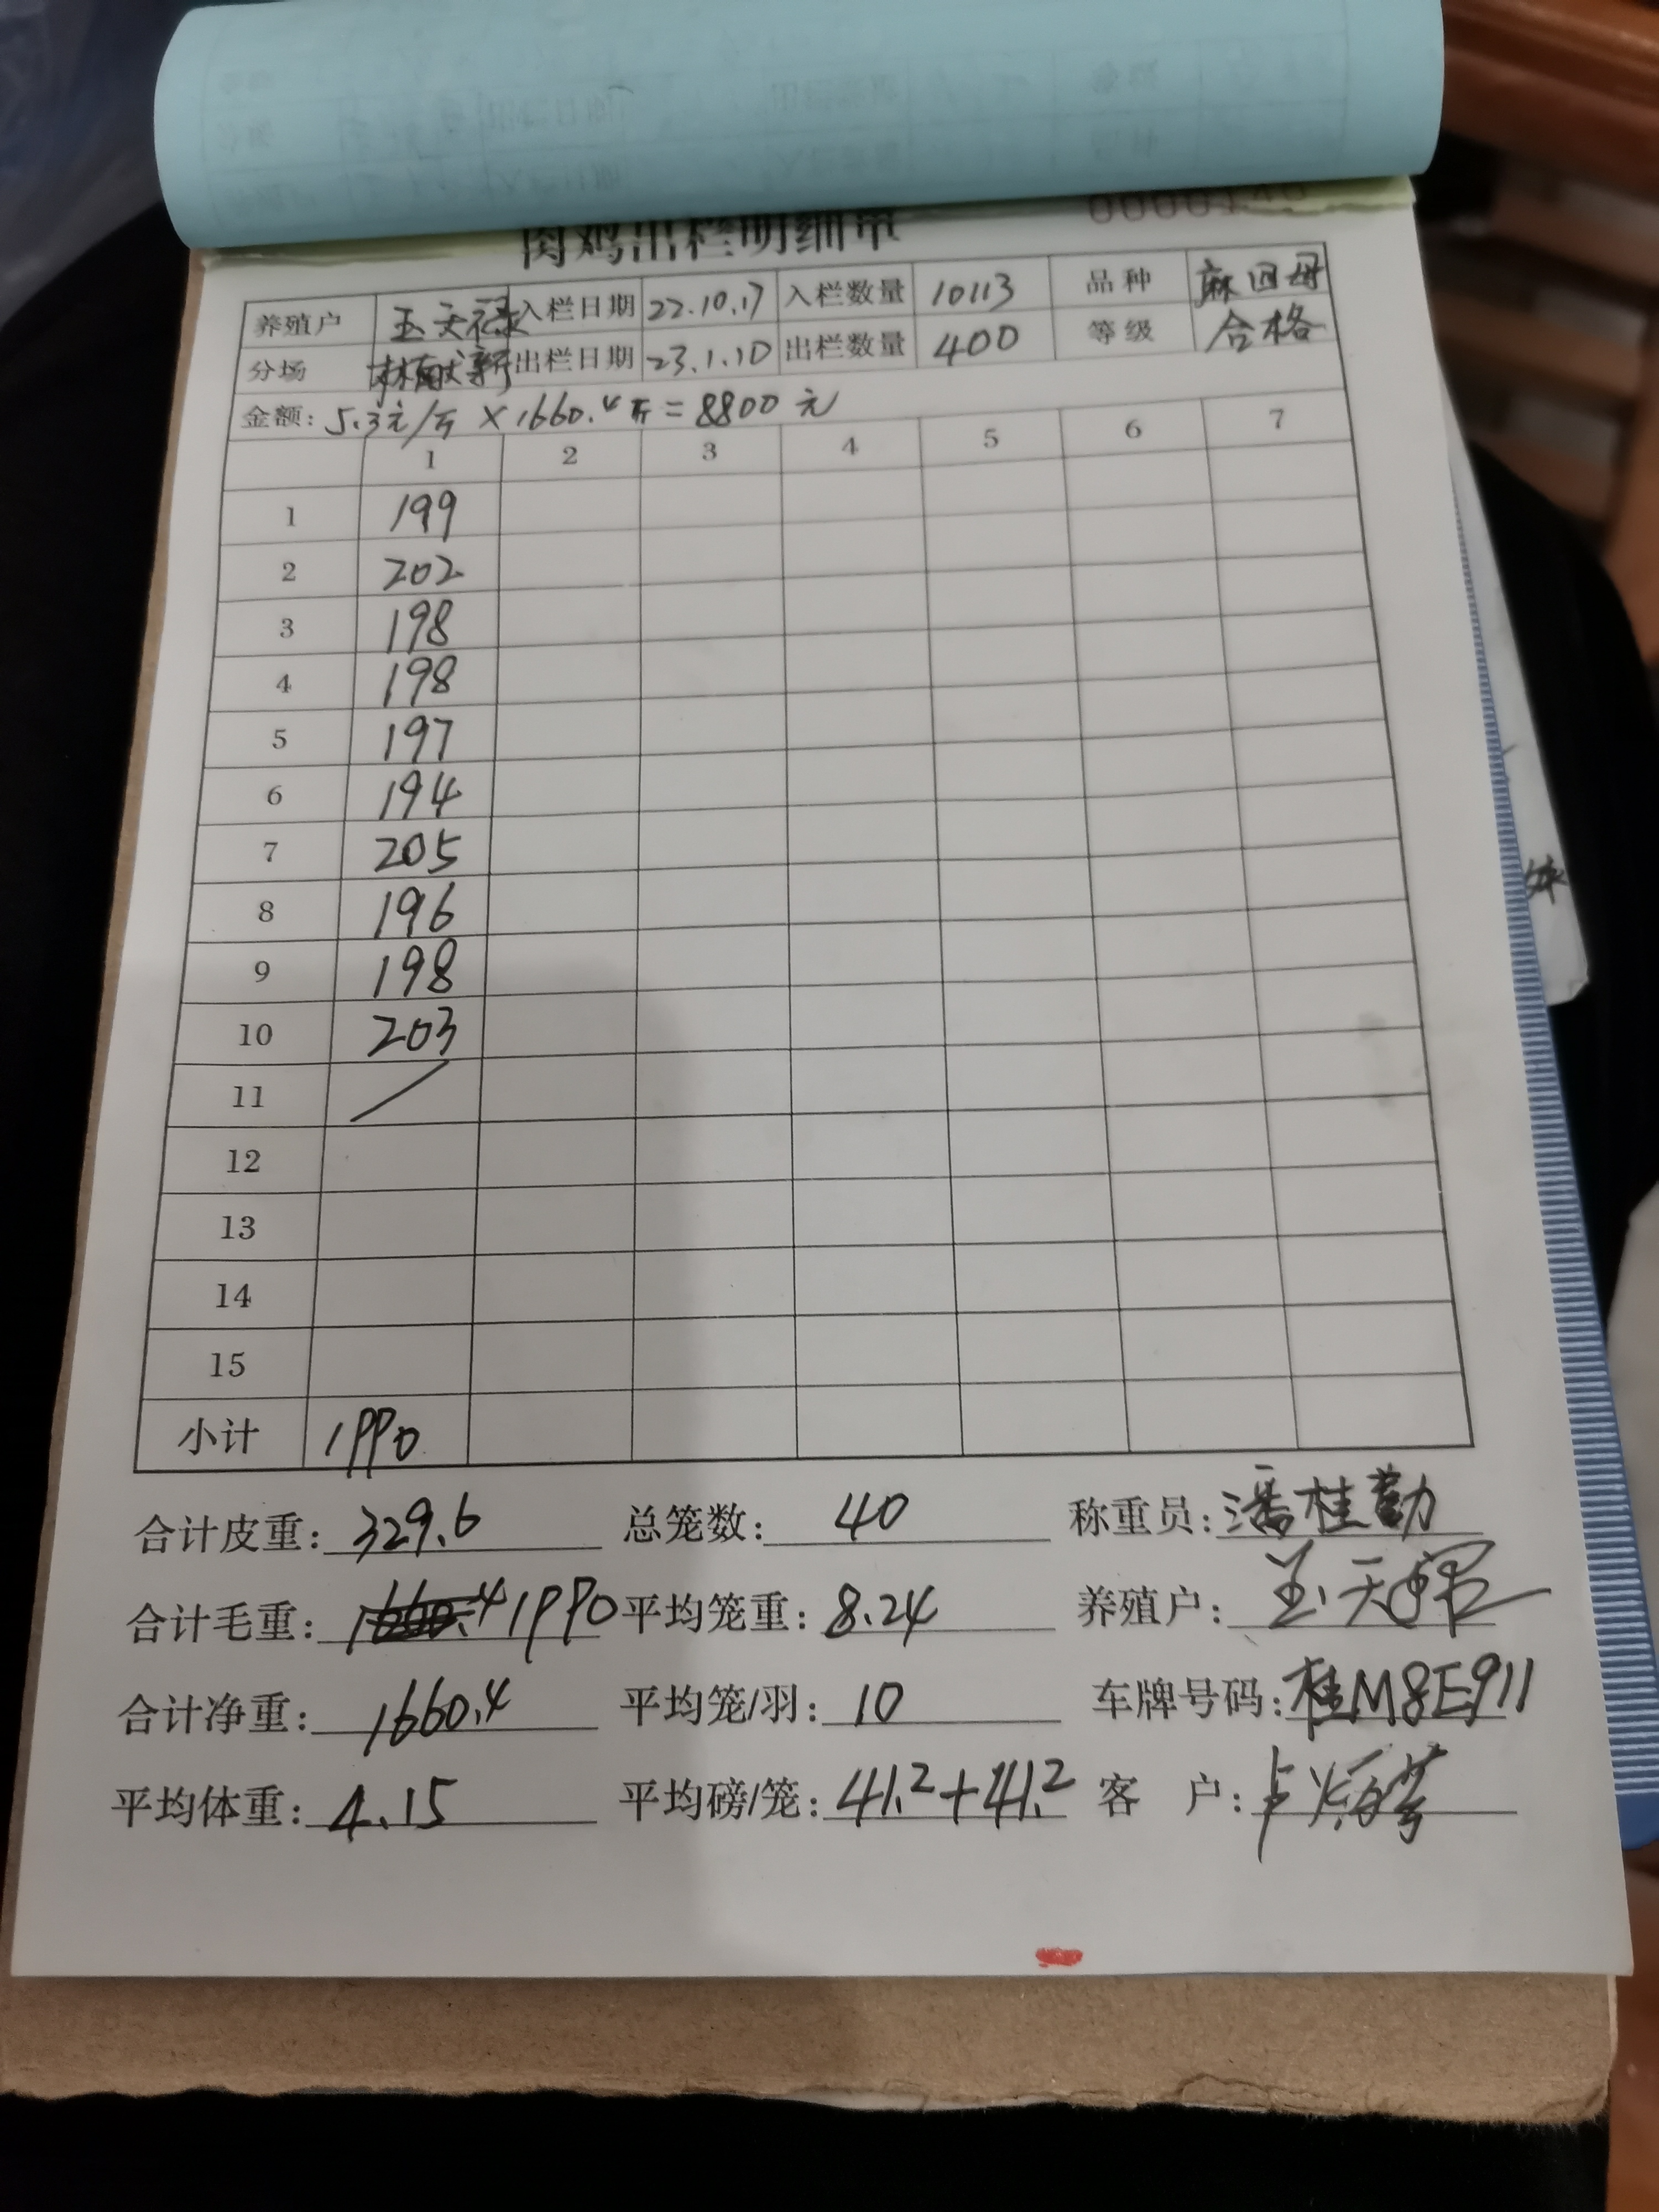 肉鸡出栏明细单
养殖户 玉天禄 入栏日期 22.10.17 入栏数量 10113 品种 麻回母
分场 林献新 出栏日期 23.1.10 出栏数量 400 等级 合格
金额: 5.3元/斤 × 1660.4斤 = 8800元
1 2 3 4 5 6 7
1 199
2 202
3 198
4 198
5 197
6 194
7 205
8 196
9 198
10 203
11 /
12
13
14
15
小计 1990
合计皮重: 329.6 总笼数: 40 称重员: 潘桂勤
合计毛重: 1990 平均笼重: 8.24 养殖户: 玉天禄
合计净重: 1660.4 平均笼/羽: 10 车牌号码: 桂M8E911
平均体重: 4.15 平均磅/笼: 41.2+41.2 客 户: